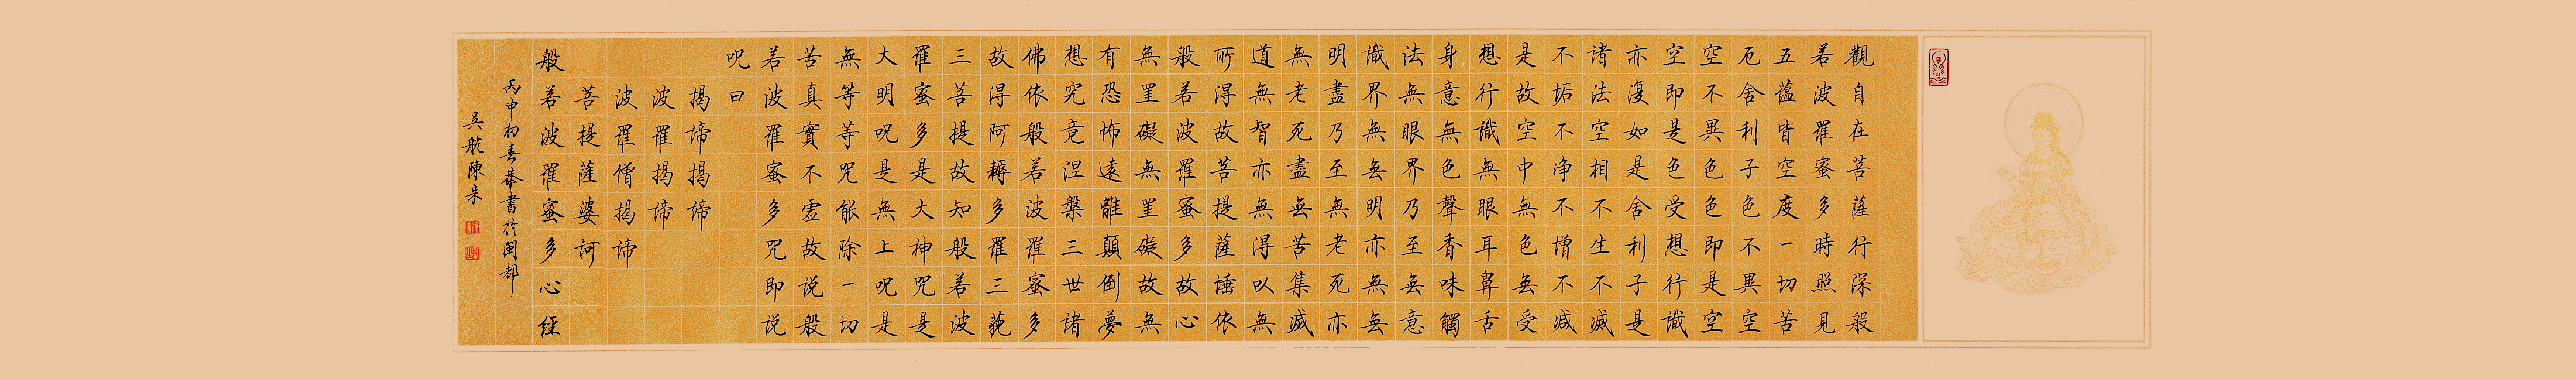 觀自在菩薩行深般
若波羅蜜多時照見
五蘊皆空度一切苦
厄舍利子色不異空
空不異色色即是空
空即是色受想行識
亦復如是舍利子是
諸法空相不生不滅
不垢不净不增不减
是故空中無色無受
想行識無眼耳鼻舌
身意無色聲香味觸
法無眼界乃至無意
識界無無明亦無無
明盡乃至無老死亦
無老死盡無苦集滅
道無智亦無得以無
所得故菩提薩埵依
般若波羅蜜多故心
無罣礙無罣礙故無
有恐怖遠離顛倒夢
想究竟涅槃三世諸
佛依般若波羅蜜多
故得阿耨多羅三藐
三菩提故知般若波
羅蜜多是大神咒是
大明呪是無上呪是
無等等咒能除一切
苦真實不虛故说般
若波羅蜜多咒即说
呪曰
揭諦揭諦
波羅揭諦
波羅僧揭諦
菩提薩婆訶
般若波羅蜜多心經
丙申初春恭書於閩都
吳航陳朱